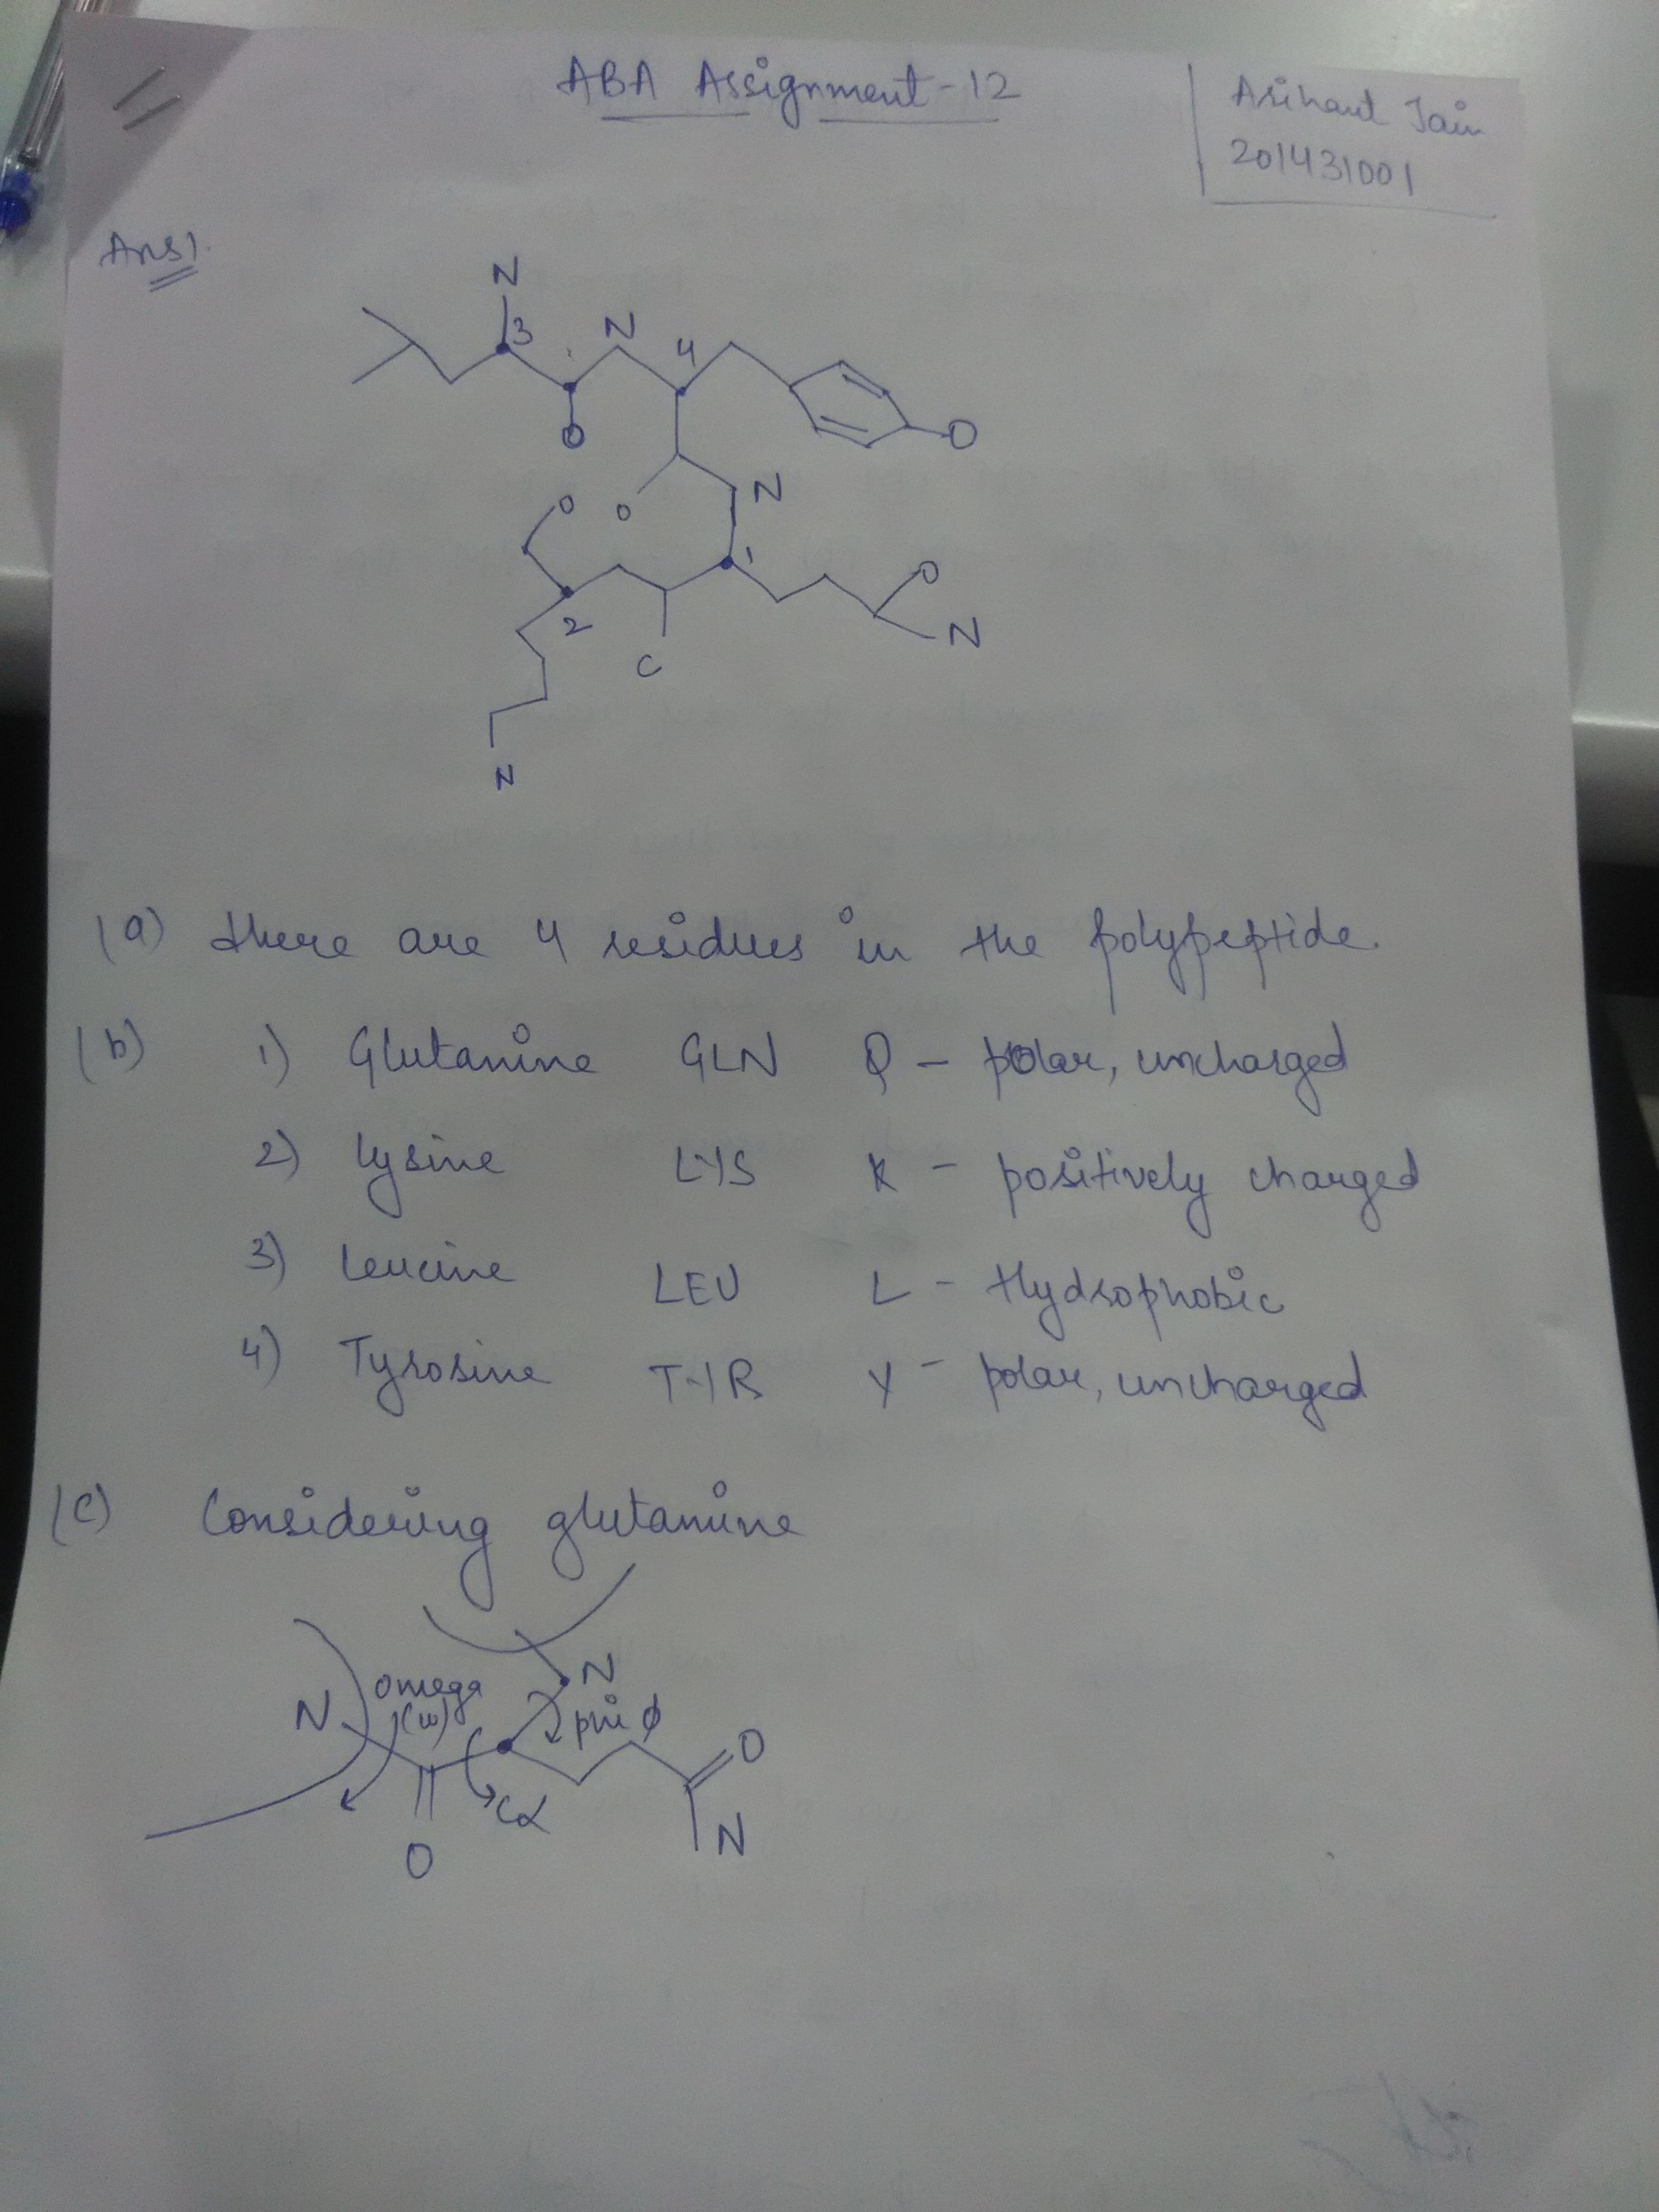 ABA Assignment-12
Arihant Jain
201431001
Ans1.
N
3
N
4
O
O
N
O
O
1
O
2
N
C
N
(a) there are 4 residues in the polypeptide.
(b) 1) Glutamine GLN Q - polar, uncharged
2) Lysine LYS K - positively charged
3) Leucine LEU L - Hydrophobic
4) Tyrosine TYR Y - polar, uncharged
(c) Considering glutamine
N
omega
N
(ω)
phi φ
O
Cα
N
O